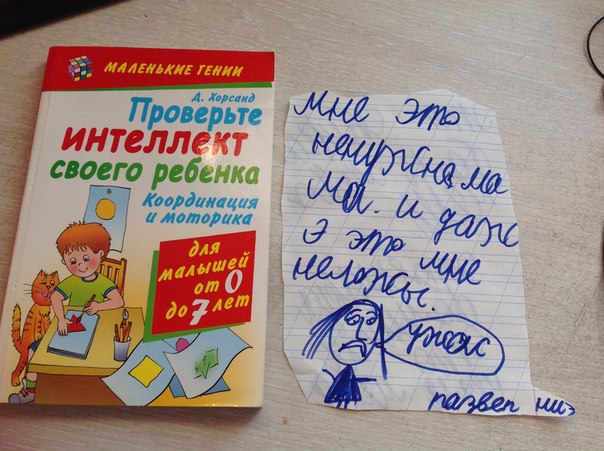 МАЛЕНЬКИЕ ГЕНИИ
Д. Хорсанд
Проверьте
ИНТЕЛЛЕКТ
своего ребенка
Координация
и моторика
для
малышей
от 0
до 7 лет
мне это
ненужна ма
ма. и даж
э это мне
неложы.
ужас